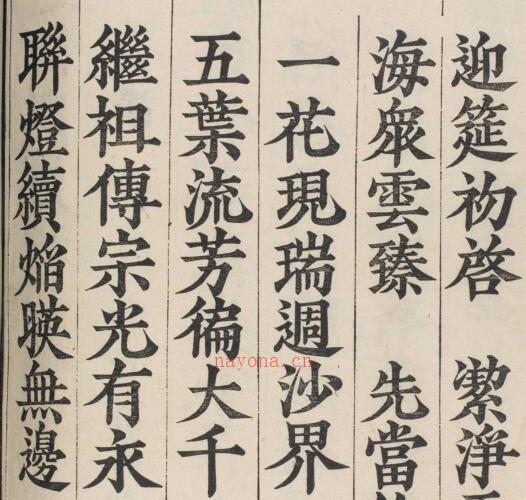 迎筵初啓 潔淨
海衆雲臻 先當
一花現瑞週沙界
五葉流芳徧大千
繼祖傳宗光有永
聯燈續焰暎無邊
nayona.cn